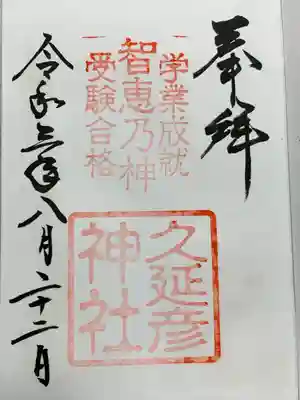 奉拝
学業成就
智恵乃神
受験合格
久延彦
神社
令和三年八月二十二日